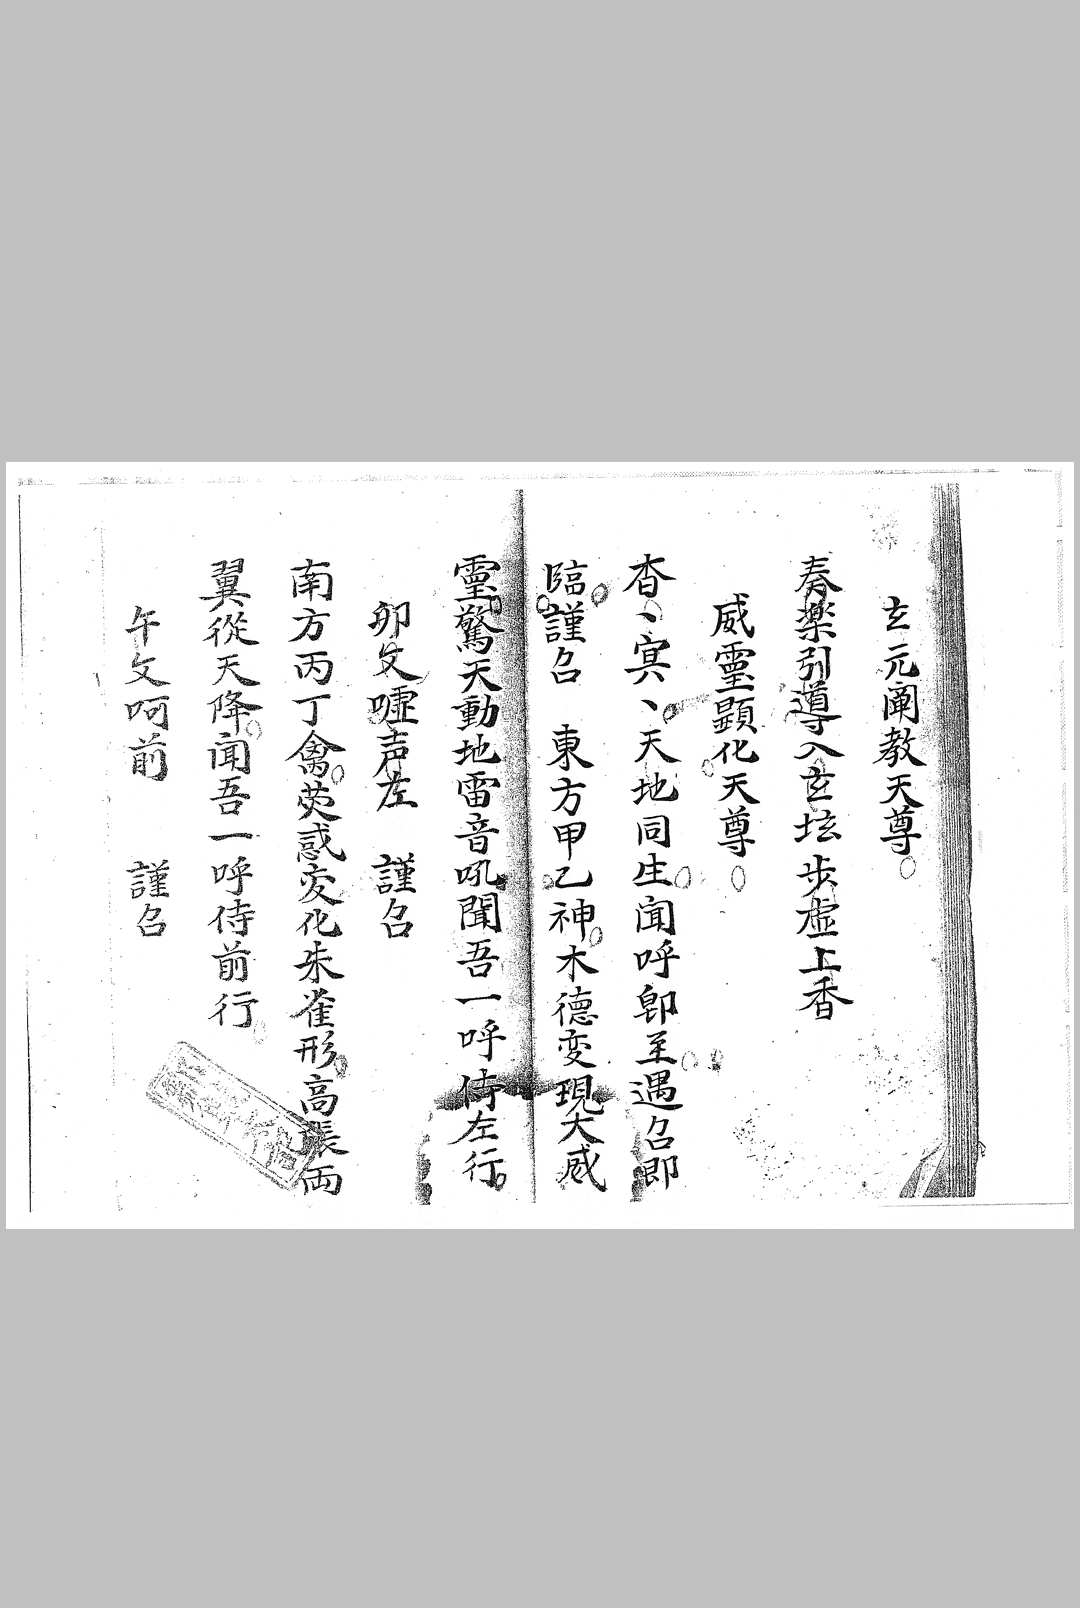 玄元阐教天尊
奏樂引導入玄坛步虛上香
威靈顕化天尊
杳〻冥〻天地同生闻呼即至遇召即
臨謹召　東方甲乙神木德变現大威
靈驚天動地雷音吼聞吾一呼侍左行
卯文嘘声左　謹召
南方丙丁禽荧惑变化朱雀形高張両
翼從天降闻吾一呼侍前行
午文呵前　謹召